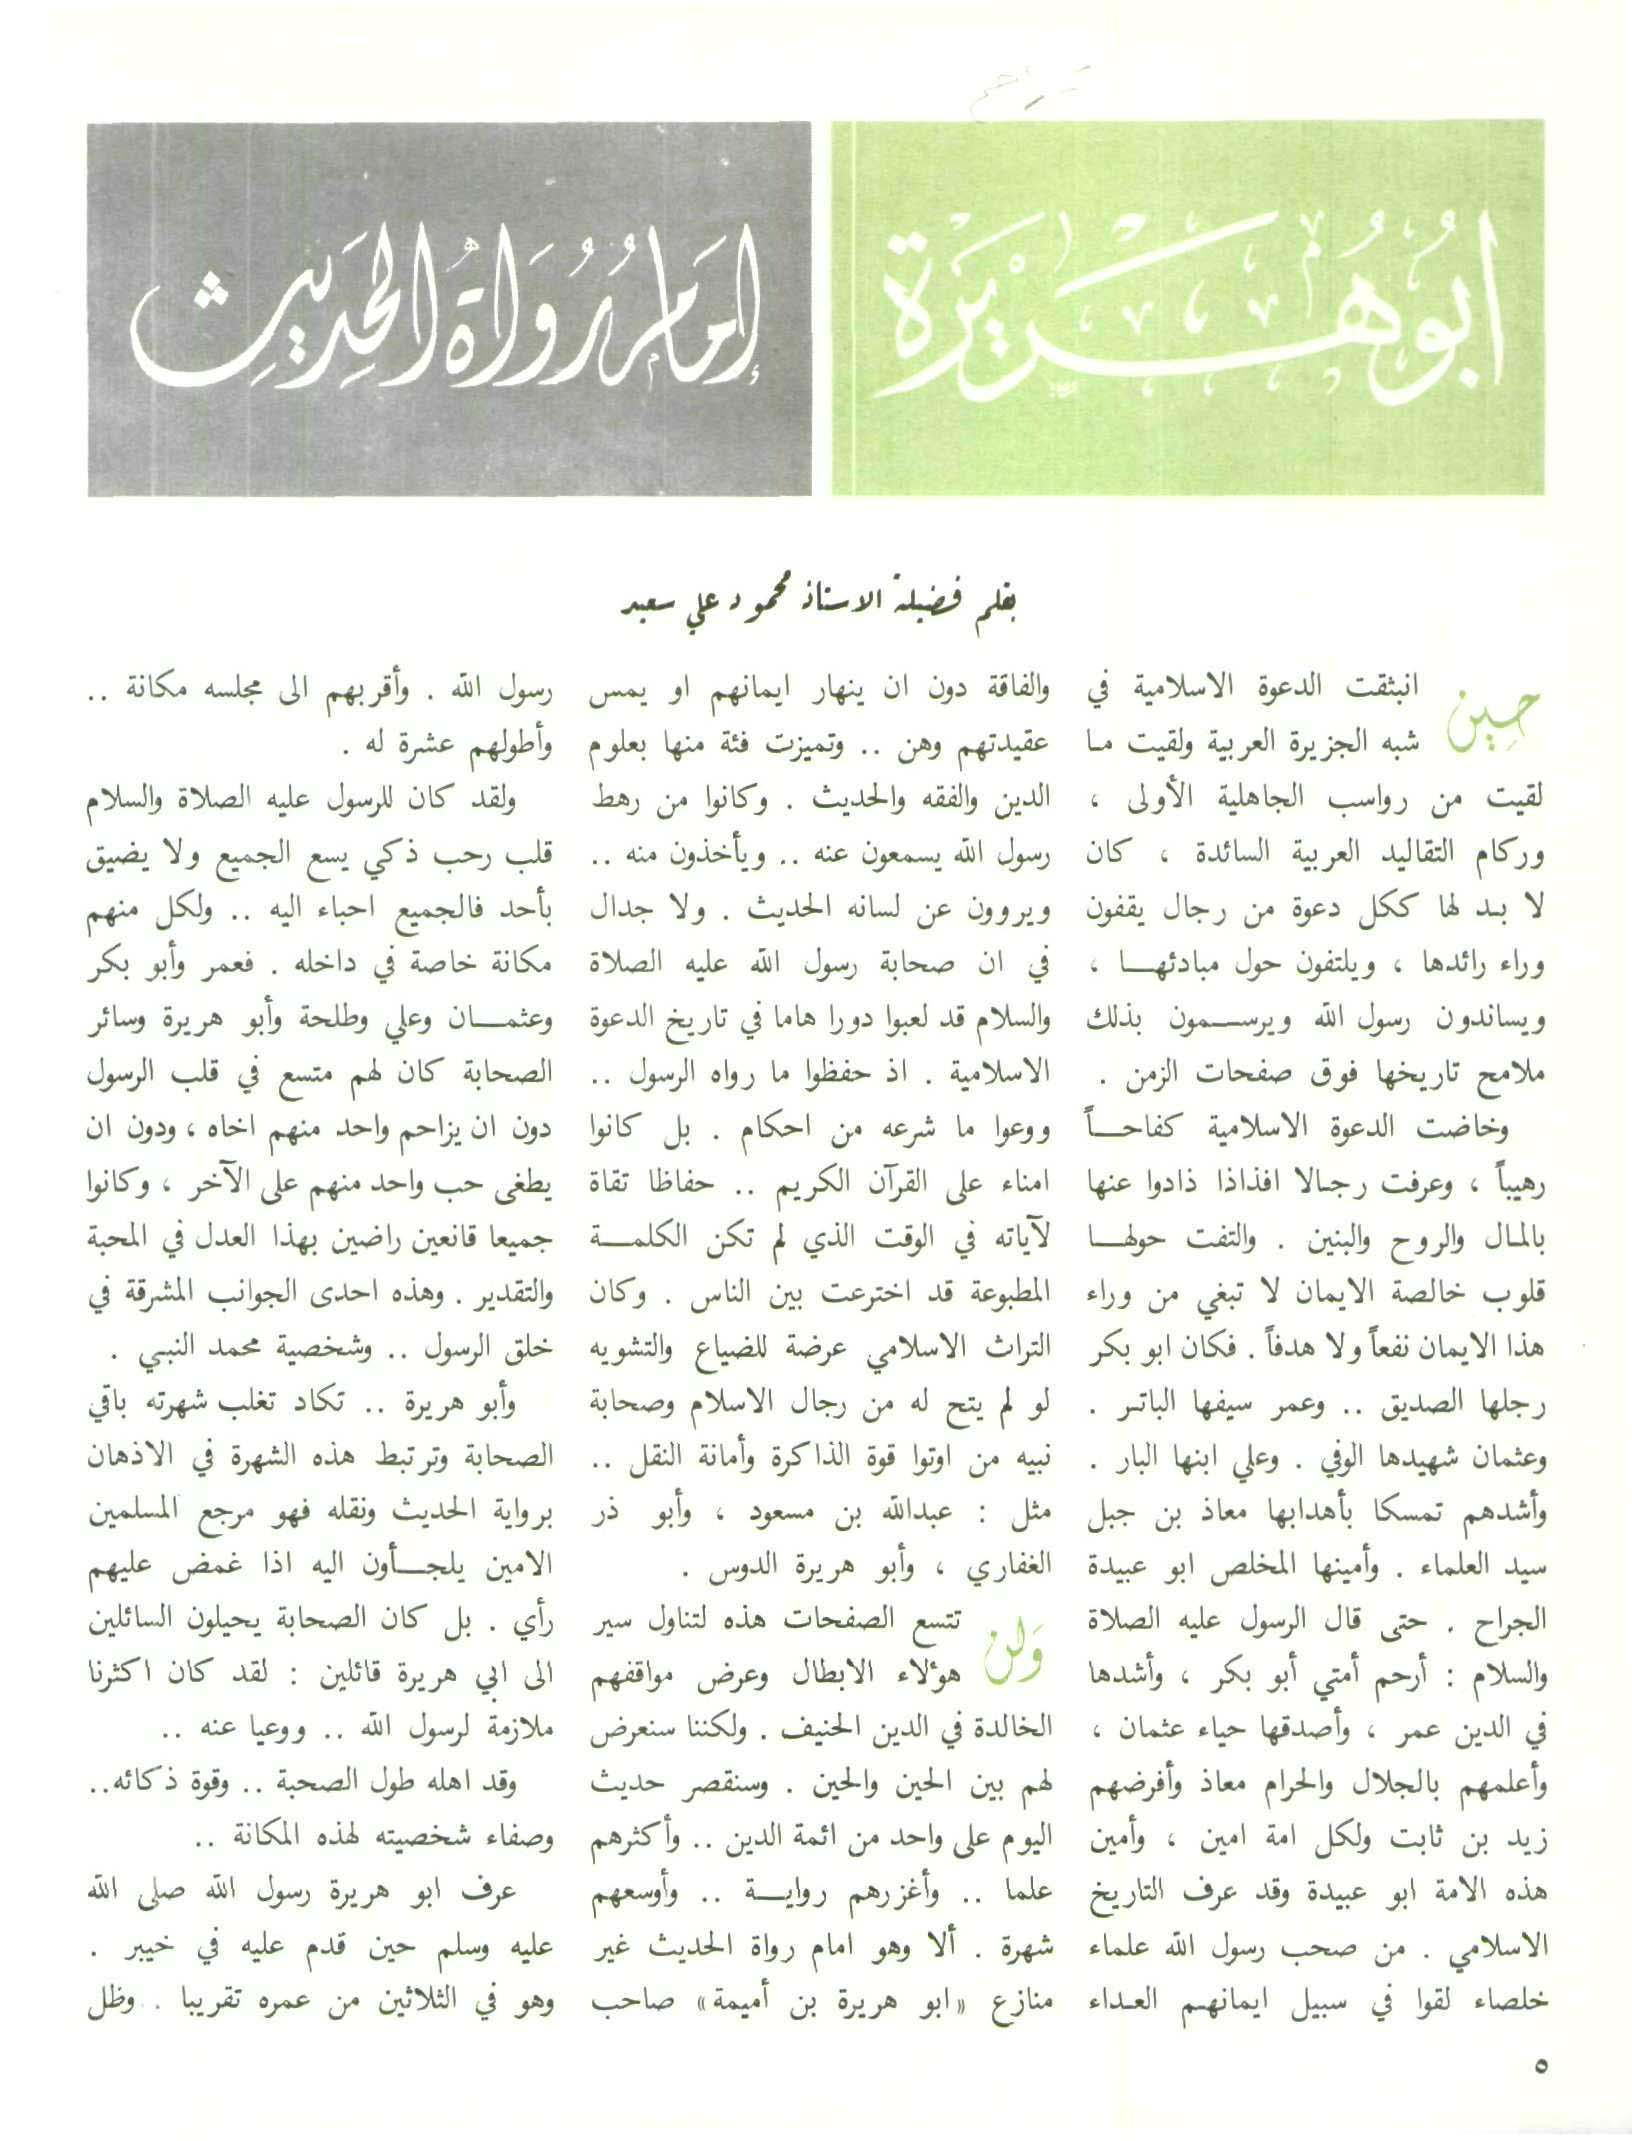 أبو هريرة
إمام رواة الحديث
بقلم فضيلة الاستاذ محمود علي سعيد
حين انبثقت الدعوة الاسلامية في
شبه الجزيرة العربية ولقيت ما
لقيت من رواسب الجاهلية الأولى ،
وركام التقاليد العربية السائدة ، كان
لا بد لها ككل دعوة من رجال يقفون
وراء رائدها ، ويلتفون حول مبادئها ،
ويساندون رسول الله ويرسمون بذلك
ملامح تاريخها فوق صفحات الزمن .
وخاضت الدعوة الاسلامية كفاحاً
رهيباً ، وعرفت رجالا افذاذا ذادوا عنها
بالمال والروح والبنين . والتفت حولها
قلوب خالصة الايمان لا تبغي من وراء
هذا الايمان نفعاً ولا هدفاً . فكان ابو بكر
رجلها الصديق .. وعمر سيفها الباتر .
وعثمان شهيدها الوفي . وعلي ابنها البار .
وأشدهم تمسكا بأهدابها معاذ بن جبل
سيد العلماء . وأمينها المخلص ابو عبيدة
الجراح . حتى قال الرسول عليه الصلاة
والسلام : أرحم أمتي أبو بكر ، وأشدها
في الدين عمر ، وأصدقها حياء عثمان ،
وأعلمهم بالحلال والحرام معاذ وأفرضهم
زيد بن ثابت ولكل امة امين ، وأمين
هذه الامة ابو عبيدة وقد عرف التاريخ
الاسلامي . من صحب رسول الله علماء
خلصاء لقوا في سبيل ايمانهم العداء
والفاقة دون ان ينهار ايمانهم او يمس
عقيدتهم وهن .. وتميزت فئة منها بعلوم
الدين والفقه والحديث . وكانوا من رهط
رسول الله يسمعون عنه .. ويأخذون منه ..
ويروون عن لسانه الحديث . ولا جدال
في ان صحابة رسول الله عليه الصلاة
والسلام قد لعبوا دورا هاما في تاريخ الدعوة
الاسلامية . اذ حفظوا ما رواه الرسول ..
ووعوا ما شرعه من احكام . بل كانوا
امناء على القرآن الكريم .. حفاظا تقاة
لآياته في الوقت الذي لم تكن الكلمة
المطبوعة قد اخترعت بين الناس . وكان
التراث الاسلامي عرضة للضياع والتشويه
لو لم يتح له من رجال الاسلام وصحابة
نبيه من اوتوا قوة الذاكرة وأمانة النقل ..
مثل : عبدالله بن مسعود ، وأبو ذر
الغفاري ، وأبو هريرة الدوس .
ولن تتسع الصفحات هذه لتناول سير
هؤلاء الابطال وعرض مواقفهم
الخالدة في الدين الحنيف . ولكننا سنعرض
لهم بين الحين والحين . وسنقصر حديث
اليوم على واحد من ائمة الدين .. وأكثرهم
علما .. وأغزرهم رواية .. وأوسعهم
شهرة . ألا وهو امام رواة الحديث غير
منازع «ابو هريرة بن أميمة» صاحب
رسول الله . وأقربهم الى مجلسه مكانة ..
وأطولهم عشرة له .
ولقد كان للرسول عليه الصلاة والسلام
قلب رحب ذكي يسع الجميع ولا يضيق
بأحد فالجميع احباء اليه .. ولكل منهم
مكانة خاصة في داخله . فعمر وأبو بكر
وعثمان وعلي وطلحة وأبو هريرة وسائر
الصحابة كان لهم متسع في قلب الرسول
دون ان يزاحم واحد منهم اخاه ، ودون ان
يطغى حب واحد منهم على الآخر ، وكانوا
جميعا قانعين راضين بهذا العدل في المحبة
والتقدير . وهذه احدى الجوانب المشرقة في
خلق الرسول .. وشخصية محمد النبي .
وأبو هريرة .. تكاد تغلب شهرته باقي
الصحابة وترتبط هذه الشهرة في الاذهان
برواية الحديث ونقله فهو مرجع المسلمين
الامين يلجأون اليه اذا غمض عليهم
رأي . بل كان الصحابة يحيلون السائلين
الى ابي هريرة قائلين : لقد كان اكثرنا
ملازمة لرسول الله .. ووعيا عنه ..
وقد اهله طول الصحبة .. وقوة ذكائه..
وصفاء شخصيته لهذه المكانة ..
عرف ابو هريرة رسول الله صلى الله
عليه وسلم حين قدم عليه في خيبر .
وهو في الثلاثين من عمره تقريبا . وظل
٥